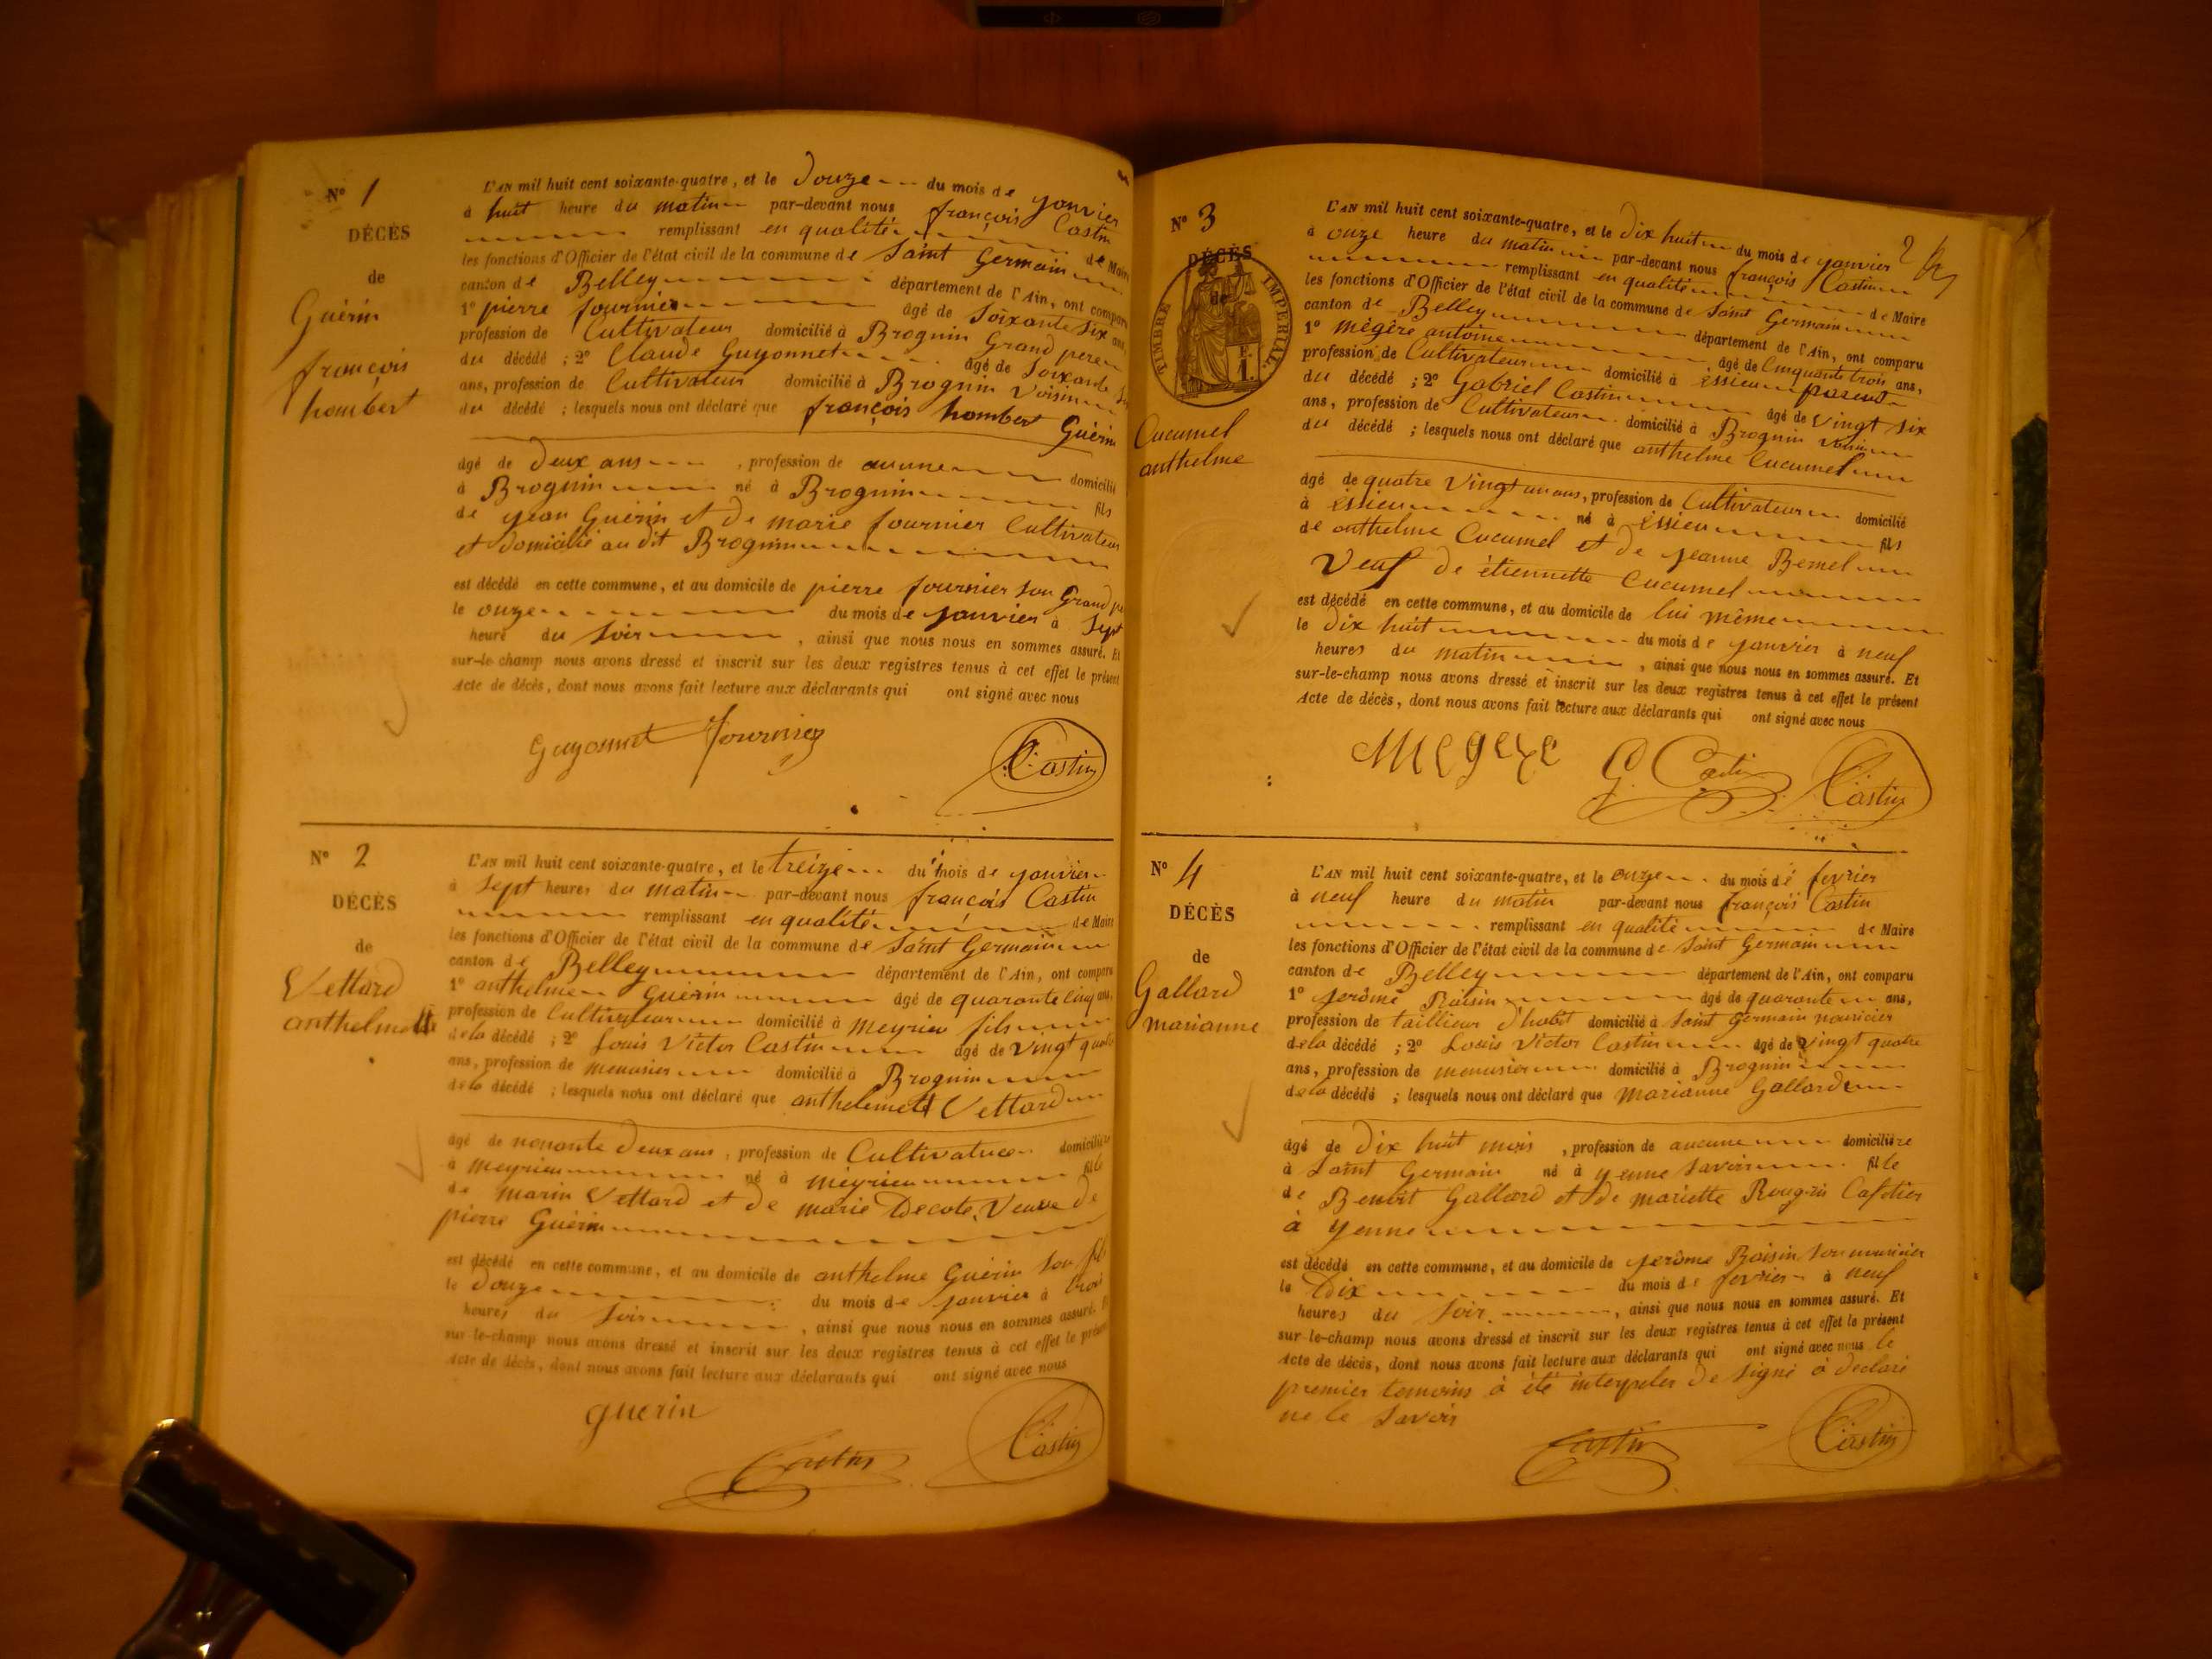 N° 1
DÉCÈS
de
Guérin
françois
hombert
L'AN mil huit cent soixante-quatre, et le Douze du mois de janvier
à huit heure du matin par-devant nous françois Castin
remplissant en qualité de Maire
les fonctions d'Officier de l'état civil de la commune de Saint Germain
canton de Belley département de l'Ain, ont comparu
1° pierre fournier âgé de Soixante Six ans,
profession de Cultivateur domicilié à Brognin Grand pere
du décédé ; 2° Claude Guyonnet âgé de Soixante
ans, profession de Cultivateur domicilié à Brognin Voisin
du décédé ; lesquels nous ont déclaré que françois hombert Guérin
âgé de Deux ans , profession de aucune domicilié
à Brognin né à Brognin fils
de jean Guérin et de marie fournier Cultivateur
et domicilié au dit Brognin
est décédé en cette commune, et au domicile de pierre fournier son Grand
le onze du mois de janvier à Sept
heure du Soir , ainsi que nous nous en sommes assuré. Et
sur-le-champ nous avons dressé et inscrit sur les deux registres tenus à cet effet le présent
Acte de décès, dont nous avons fait lecture aux déclarants qui ont signé avec nous
Guyonnet fournier Castin
N° 2
DÉCÈS
de
Vettard
anthelmette
L'AN mil huit cent soixante-quatre, et le treize du mois de janvier
à Sept heures du matin par-devant nous françois Castin
remplissant en qualité de Maire
les fonctions d'Officier de l'état civil de la commune de Saint Germain
canton de Belley département de l'Ain, ont comparu
1° anthelme Guérin âgé de quarante cinq ans,
profession de Cultivateur domicilié à meyrieu fils
de la décédé ; 2° Louis Victor Castin âgé de Vingt quatre
ans, profession de menusier domicilié à Brognin
de la décédé ; lesquels nous ont déclaré que anthelmette Vettard
âgé de nonante Deux ans , profession de Cultivatrice domicilié
à meyrieu né à meyrieu fille
de marin Vettard et de marie Decote, Veuve de
pierre Guérin
est décédé en cette commune, et au domicile de anthelme Guérin Son fils
le Douze du mois de janvier à trois
heures du Soir , ainsi que nous nous en sommes assuré. Et
sur-le-champ nous avons dressé et inscrit sur les deux registres tenus à cet effet le présent
Acte de décès, dont nous avons fait lecture aux déclarants qui ont signé avec nous
guerin
Castin Castin
N° 3
DÉCÈS
de
TIMBRE IMPERIAL.
E.
1.
Cucumel
anthelme
2
L'AN mil huit cent soixante-quatre, et le Dix huit du mois de janvier
à onze heure du matin par-devant nous françois Castin
remplissant en qualité de Maire
les fonctions d'Officier de l'état civil de la commune de Saint Germain
canton de Belley département de l'Ain, ont comparu
1° mègère antoine âgé de Cinquante trois ans,
profession de Cultivateur domicilié à éssieu parent
du décédé ; 2° Gabriel Castin âgé de Vingt Six
ans, profession de Cultivateur domicilié à Brognin Voisin
du décédé ; lesquels nous ont déclaré que anthelme Cucumel
âgé de quatre Vingt un ans, profession de Cultivateur domicilié
à éssieu né à éssieu fils
de anthelme Cucumel et de jeanne Bemel
Veuf de étiennette Cucumel
est décédé en cette commune, et au domicile de lui même
le Dix huit du mois de janvier à neuf
heures du matin , ainsi que nous nous en sommes assuré. Et
sur-le-champ nous avons dressé et inscrit sur les deux registres tenus à cet effet le présent
Acte de décès, dont nous avons fait lecture aux déclarants qui ont signé avec nous
Miegexe G Castin Castin
N° 4
DÉCÈS
de
Gallard
marianne
L'AN mil huit cent soixante-quatre, et le onze du mois de fevrier
à neuf heure du matin par-devant nous françois Castin
remplissant en qualité de Maire
les fonctions d'Officier de l'état civil de la commune de Saint Germain
canton de Belley département de l'Ain, ont comparu
1° jerôme Raisin âgé de quarante ans,
profession de taillieur d'habit domicilié à Saint Germain nouricier
de la décédé ; 2° Louis Victor Castin âgé de Vingt quatre
ans, profession de menusier domicilié à Brognin
de la décédé ; lesquels nous ont déclaré que marianne Gallard
âgé de Dix huit mois , profession de aucune domicilière
à Saint Germain né à yenne Savoie fille
de Benoit Gallard et de mariette Rougrin Cafetier
à yenne
est décédé en cette commune, et au domicile de jerôme Raisin Son nouricier
le Dix du mois de fevrier à neuf
heures du Soir , ainsi que nous nous en sommes assuré. Et
sur-le-champ nous avons dressé et inscrit sur les deux registres tenus à cet effet le présent
Acte de décès, dont nous avons fait lecture aux déclarants qui ont signé avec nous le
premier temoins à été interpeler de Signé à declaré
ne le Savoir
Castin Castin